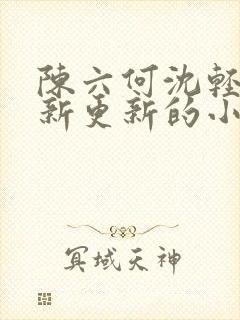 陳六何沈輕
新更新的小
冥域天神